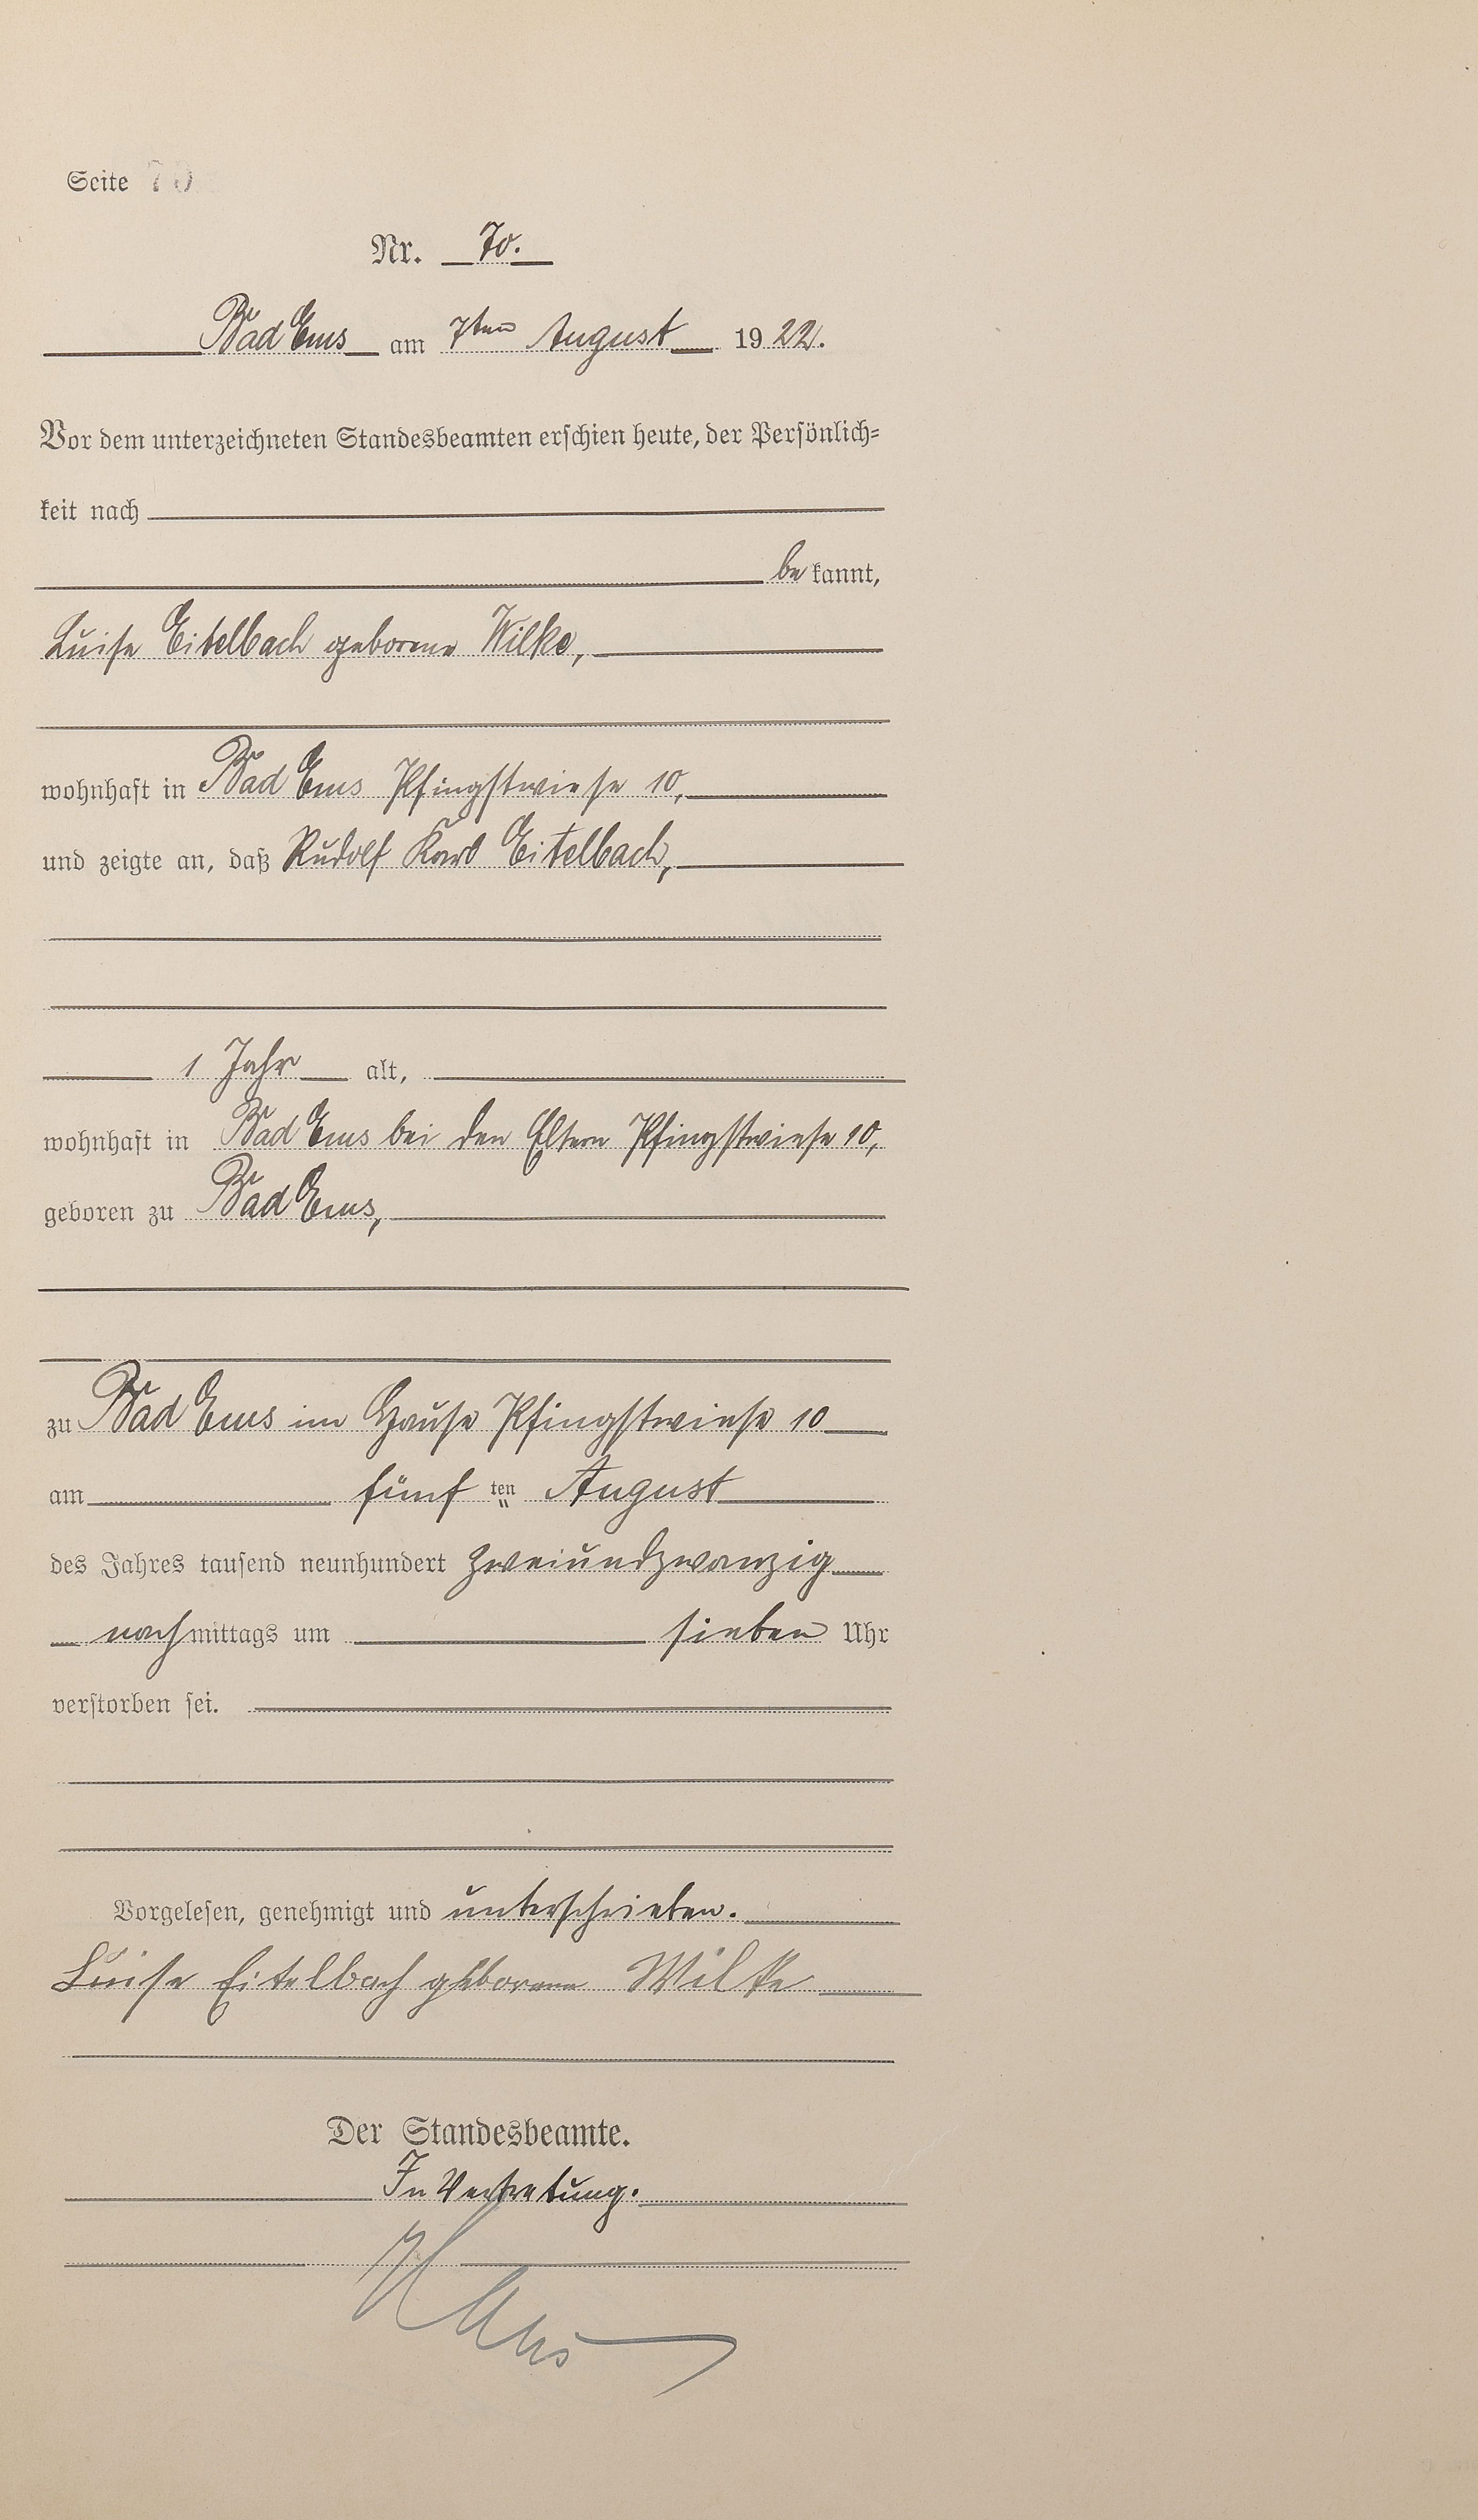 Seite 70
Nr. 70.
Bad Ems am 7ten August 1922.
Vor dem unterzeichneten Standesbeamten erschien heute, der Persönlich-
keit nach
bekannt,
Luise Eitelbach geborene Wilke,
wohnhaft in Bad Ems Pfingstwiese 10,
und zeigte an, daß Rudolf Karl Eitelbach,
1 Jahr alt,
wohnhaft in Bad Ems bei den Eltern Pfingstwiese 10,
geboren zu Bad Ems,
zu Bad Ems im Hause Pfingstwiese 10
am fünf ten August
des Jahres tausend neunhundert zweiundzwanzig
nachmittags um sieben Uhr
verstorben sei.
Vorgelesen, genehmigt und unterschrieben.
Luise Eitelbach geborene Wilke
Der Standesbeamte.
In Vertretung.